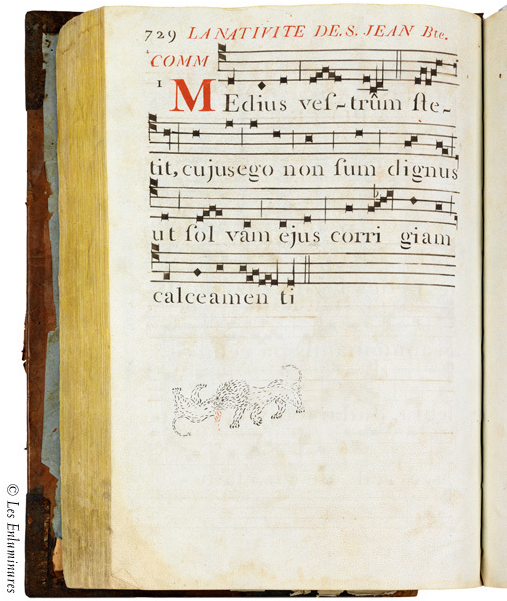 729 LA NATIVITE DE.S. JEAN Bte.
COMM
1 MEdius veſ-trûm ſte-
tit, cujusego non ſum dignus
ut ſol vam ejus corri giam
calceamen ti
© Les Enluminures